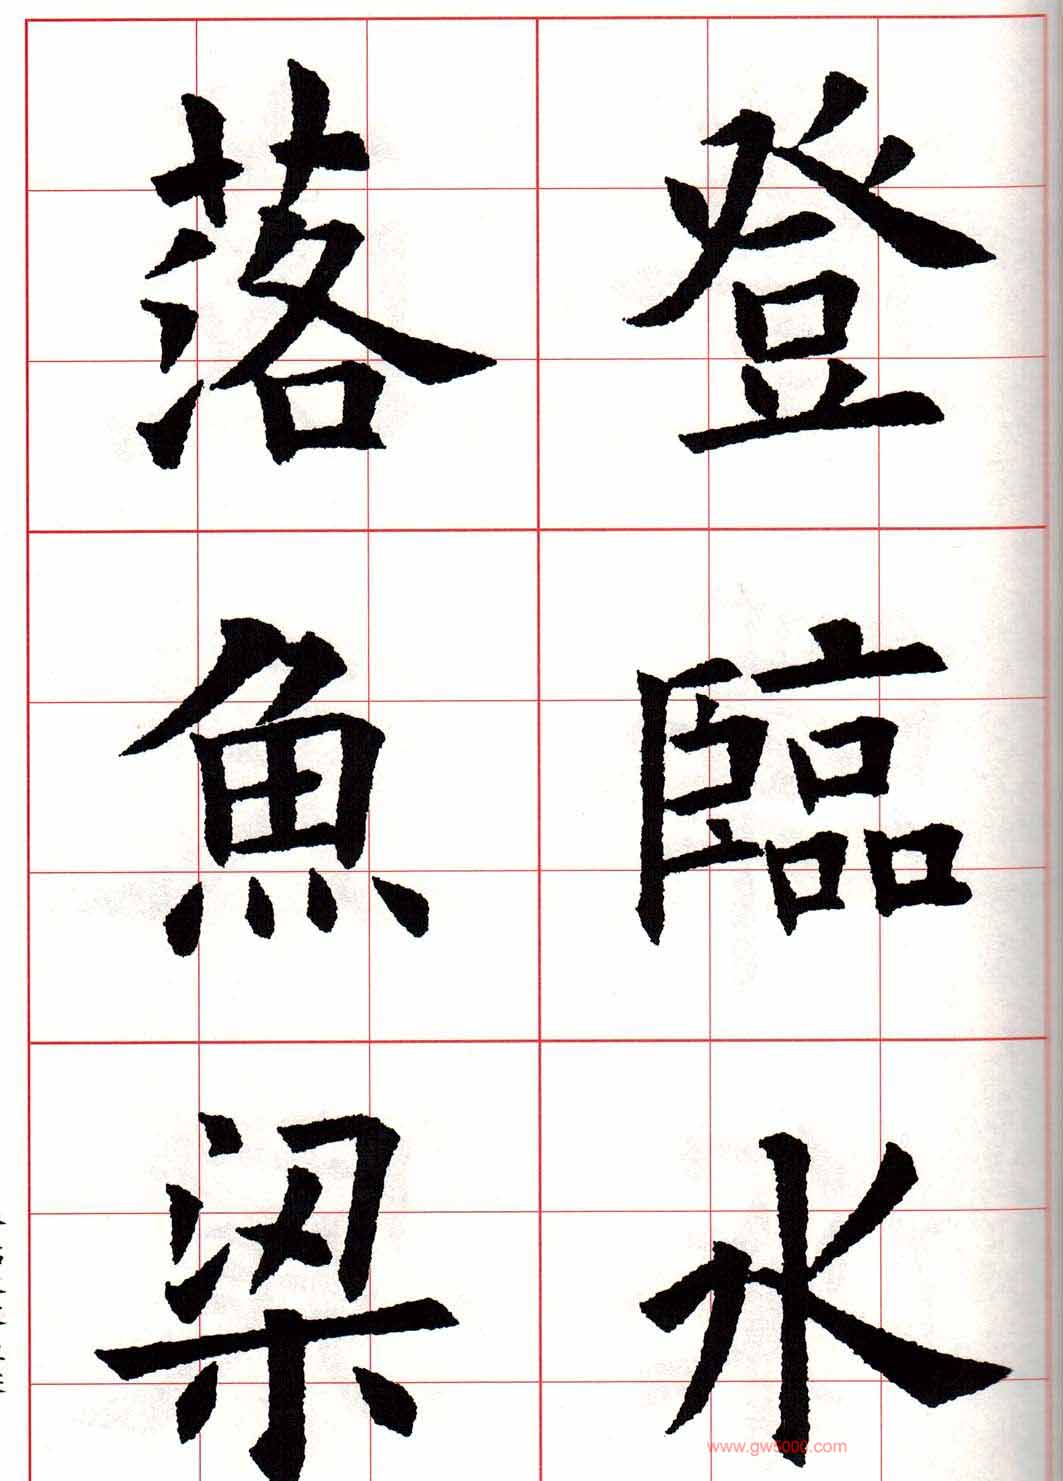 登臨水
落魚梁
www.gw5000.com